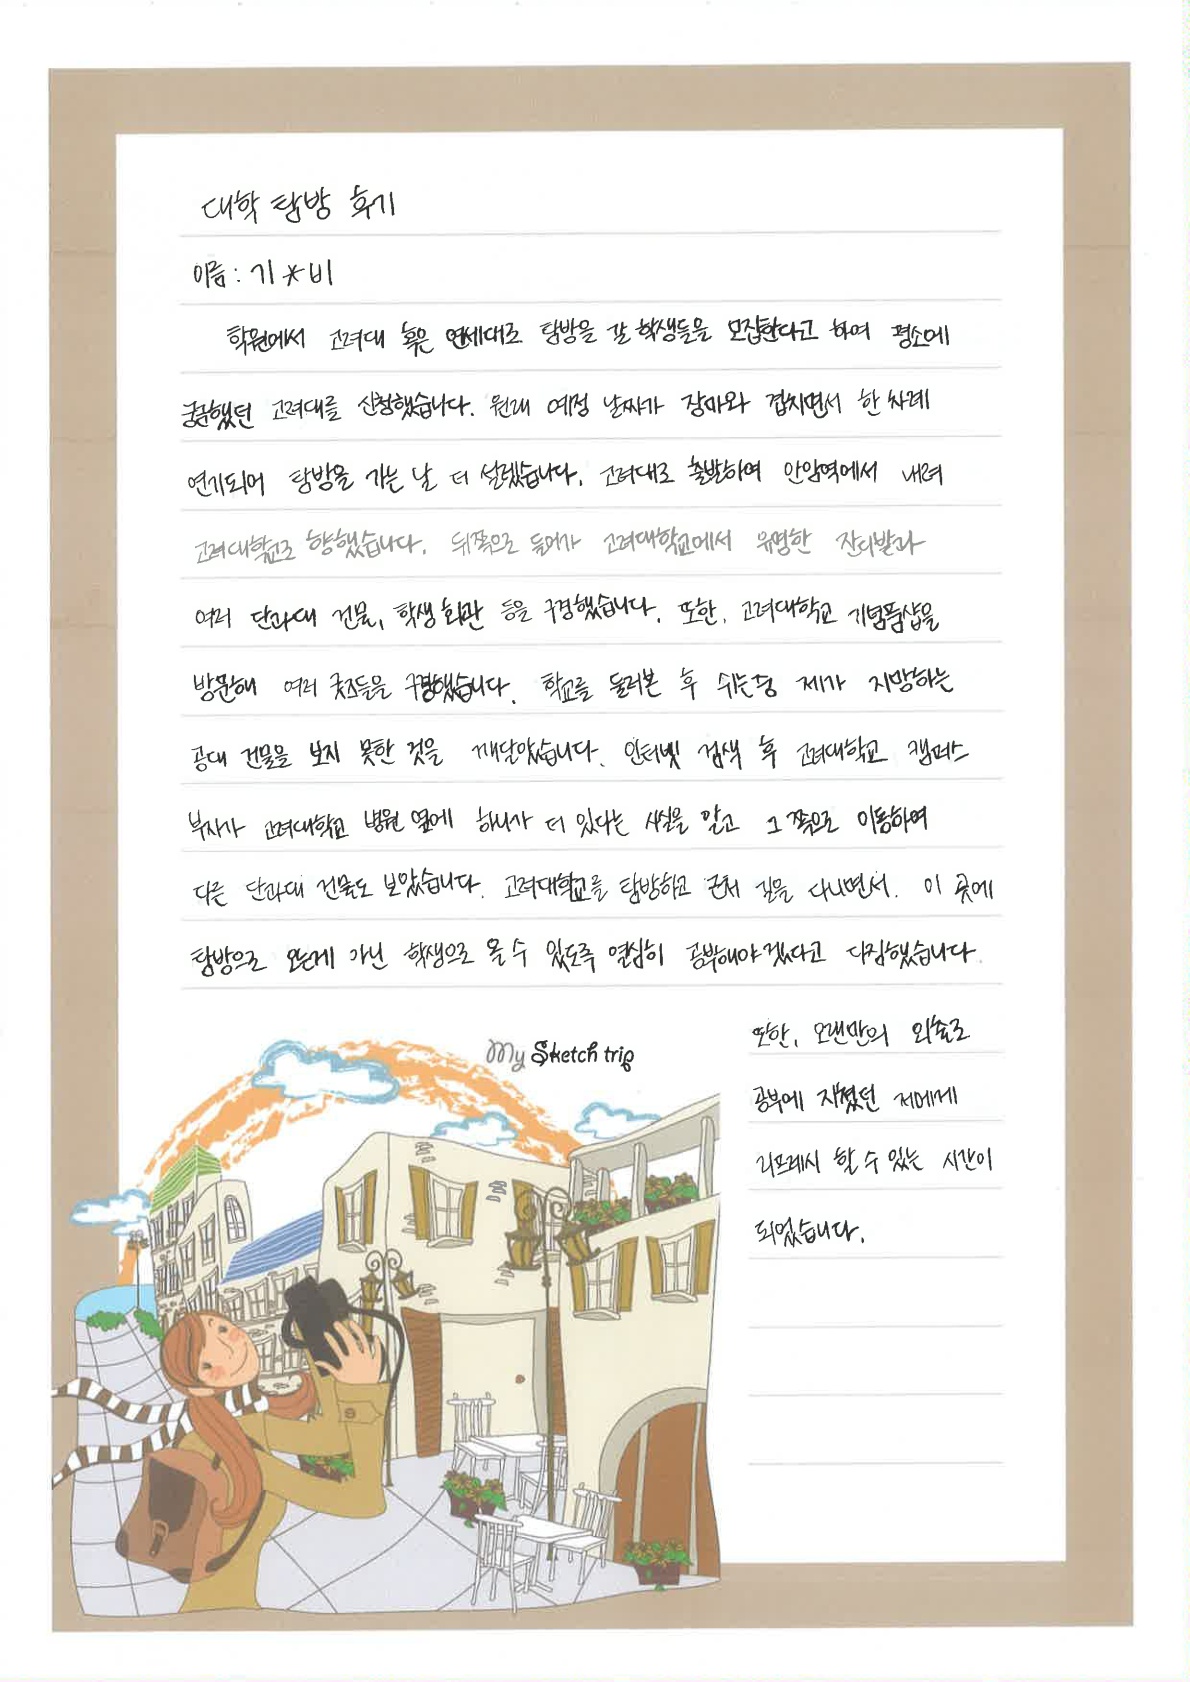 대학 탐방 후기
이름 : 기*비
학원에서 고려대 혹은 연세대로 탐방을 갈 학생들을 모집한다고 하여 평소에
궁금했던 고려대를 신청했습니다. 원래 예정 날짜가 장마와 겹치면서 한 차례
연기되어 탐방을 가는 날 더 설렜습니다. 고려대로 출발하여 안암역에서 내려
고려대학교로 향했습니다. 뒤쪽으로 들어가 고려대학교에서 유명한 잔디밭과
여러 단과대 건물, 학생회관 등을 구경했습니다. 또한, 고려대학교 기념품샵을
방문해 여러 굿즈들을 구경했습니다. 학교를 둘러본 후 쉬는중 제가 지망하는
공대 건물을 보지 못한 것을 깨달았습니다. 인터넷 검색 후 고려대학교 캠퍼스
부지가 고려대학교 병원 옆에 하나가 더 있다는 사실을 알고 그 쪽으로 이동하여
다른 단과대 건물도 보았습니다. 고려대학교를 탐방하고 근처 길을 다니면서. 이 곳에
탐방으로 오는게 아닌 학생으로 올 수 있도록 열심히 공부해야겠다고 다짐했습니다.
또한, 오랜만의 외출로
공부에 지쳤던 저에게
리프레시 할 수 있는 시간이
되었습니다.
My Sketch trip